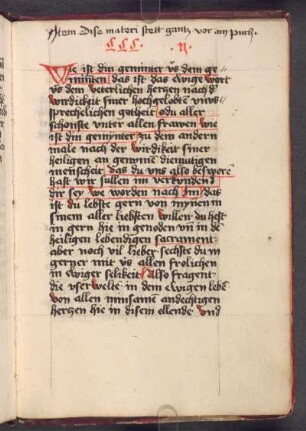 Item Dise materi stett gantz vor am puch.
CCC. N.
Wie ist din gemintter vs dem ge
mintten das ist das ewige wort
vs dem veterlichen hertzen nach d
wirdikeit siner hochgelobten vnus
sprechelichen gotheit o du aller
schonste vnter allen frawen wie
ist din gemyntter zu dem andern
male nach der wirdikeit siner
heiligen an genomme diemutigen
menscheit das du vns also besworē
hast wir sullen im verkunden
dir sey we worden nach im dat
ist du lebste gern von mynen in
sinem aller liebsten willen du hest
in gern hie in genoden vn̄ in de
heiligen lebendigen sacrament
aber noch vil lieber sechste du in
gerner mit vs allen frolichen
in ewiger selikeit Also fragent
die vserwelte in dem ewigen lebē
von allen minsamē andechtigen
hertzen hie in disem ellende vnd